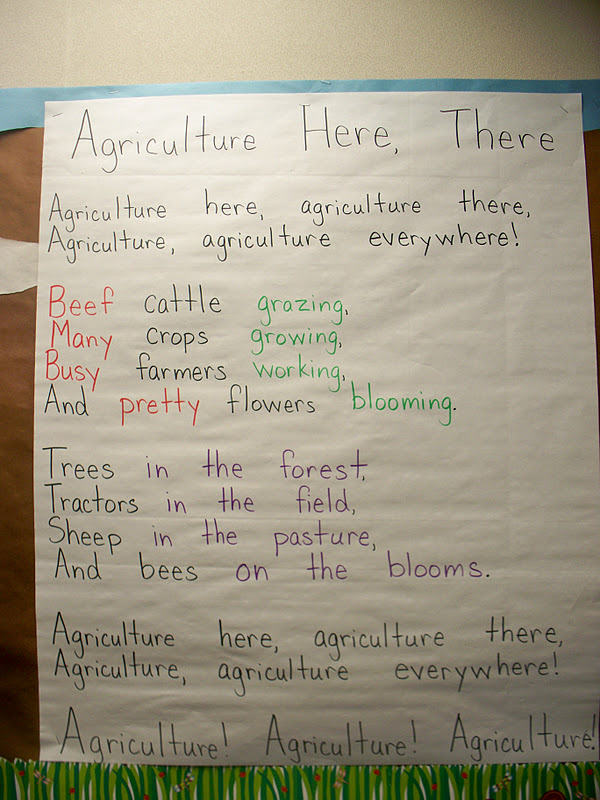 Agriculture Here, There
Agriculture here, agriculture there,
Agriculture, agriculture everywhere!
Beef cattle grazing,
Many crops growing,
Busy farmers working,
And pretty flowers blooming.
Trees in the forest,
Tractors in the field,
Sheep in the pasture,
And bees on the blooms.
Agriculture here, agriculture there,
Agriculture, agriculture everywhere!
Agriculture! Agriculture! Agriculture!